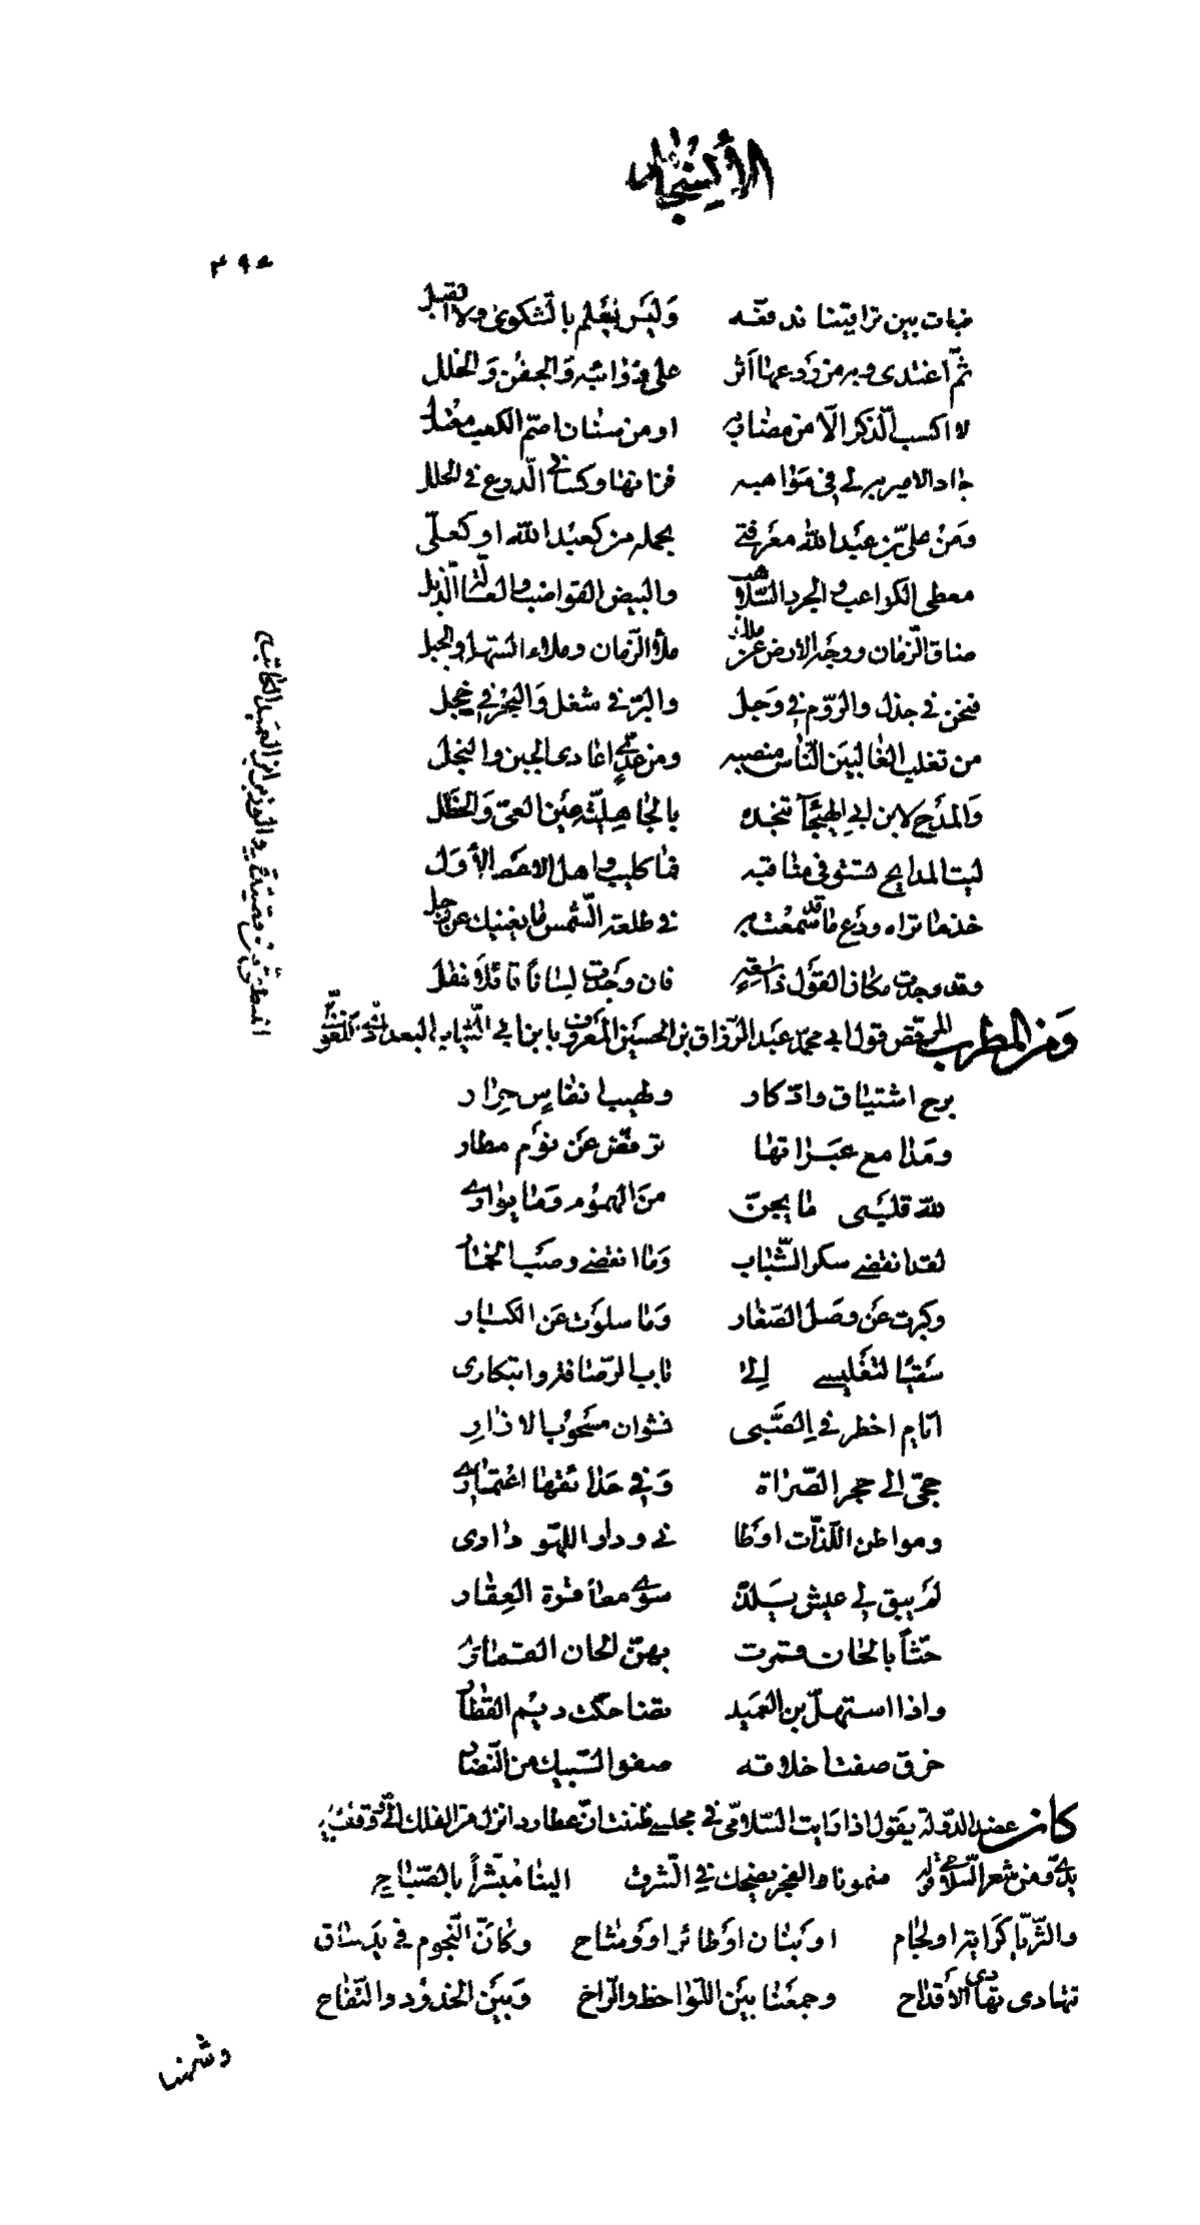 الأشجار
٣٩٤
فبات بين تراقينا ندفعه وليس يعلم بالشكوى ولا القبل
ثم اغتدى وبه من ردعها اثر على ذؤابته والجفن والخلل
لا اكسب الذكر الا من مضاربه او من سنان اصم الكعب معتدل
جاد الامير به لي في مواهبه فزانها وكساني الدرع في الحلل
ومن علي بن عبد الله معرفتي بحمله من كعبد الله او كعلي
معطي الكواعب والجرد السلاهب والبيض القواضب والعسالة الذبل
ضاق الزمان ووجه الارض عن ملك ملأ الزمان وملاء السهل والجبل
فنحن في جذل والروم في وجل والبر في شغل والبحر في خجل
من تغلب الغالبين الناس منصبه ومن عدي اعادى الجبن والبخل
والمدح لابن ابي الهيجآ تنجده بالجاهلية عين العي والخطل
ليت المدايح تستوفي مناقبه فما كليب واهل الاعصر الأول
خذ ما تراه ودع ما قد سمعت به في طلعة الشمس ما يغنيك عن زحل
وقد وجدت مكان القول ذا سعة فان وجدت لسانا قائلا فقل
ومن المطرب المرقص قول ابي محمد عبد الرزاق بن الحسين المعروف بابن ابي الثياب البغدادي
برح اشتياق وادكار ولهيب انفاس حرار
ومدامع عبراتها ترفض عن نوم مطار
لله قلبي ما يجن من الهموم وما يواري
لقد انقضى سكر الشباب وما انقضى وصب الخمار
وكبرت عن وصل الصغار وما سلوت عن الكبار
سقيا لتغليسي الى باب الرصافة وابتكاري
ايام اخطر في الصبى نشوان مسحوب الازار
حجي الى حجر الصراة وفي حدائقها اعتماري
ومواطن اللذات اوطاني ودار اللهو داري
لم يبق لي عيش يلذ سوى معاقرة العقار
حثا بالحان قمرت بهن الحان القماري
واذا استهل بن العميد تضاحكت ديم القطار
خرق صفت اخلاقه صفو السبيك من النضار
كان عضد الدولة يقول اذا رايت السلامي في مجلسي ظننت ان عطارد انزل من الفلك الي ووقف بين
يدي ومن شعر السلامي قوله والفجر يضحك في الشرق الينا مبشرا بالصباح
والثريا كراية او لجام او بنان او طائر او وشاح وكان النجوم في يد ساق
تهادى تهادي الأقداح وجمعنا بين اللواحظ والراح وبين الخدود والتفاح
وشمنا